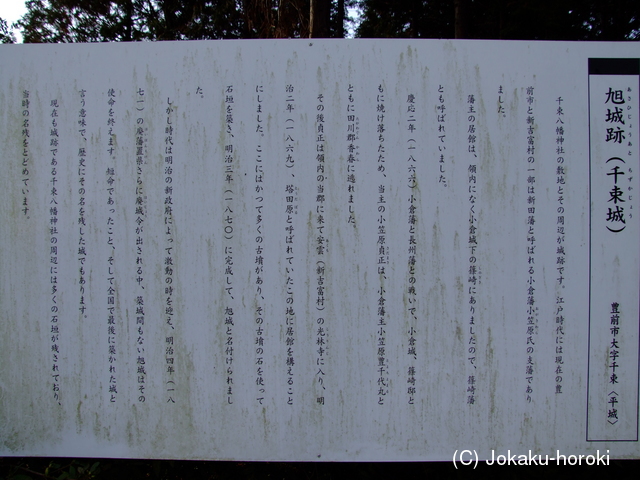 旭城跡（千束城）
あさひじょうあと　ちづかじょう
豊前市大字千束〈平城〉
千束八幡神社の敷地とその周辺が城跡です。江戸時代には現在の豊
前市と新吉富村の一部は新田藩と呼ばれる小倉藩小笠原氏の支藩であり
ました。
藩主の居館は、領内になく小倉城下の篠崎にありましたので、篠崎藩
とも呼ばれていました。
慶応二年（一八六六）小倉藩と長州藩との戦いで、小倉城、篠崎邸と
もに焼け落ちたため、当主の小笠原貞正は、小倉藩主小笠原豊千代丸と
ともに田川郡香春に逃れました。
その後貞正は領内の当郡に来て安雲（新吉富村）の光林寺に入り、明
治二年（一八六九）、塔田原と呼ばれていたこの地に居館を構えること
にしました。ここにはかつて多くの古墳があり、その古墳の石を使って
石垣を築き、明治三年（一八七〇）に完成して、旭城と名付けられまし
た。
しかし時代は明治の新政府によって激動の時を迎え、明治四年（一八
七一）の廃藩置県さらに廃城令が出される中、築城間もない旭城はその
使命を終えます。短命であったこと、そして全国で最後に築かれた城と
言う意味で、歴史にその名を残した城でもあります。
現在も城跡である千束八幡神社の周辺には多くの石垣が残されており、
当時の名残をとどめています。
(C) Jokaku-horoki